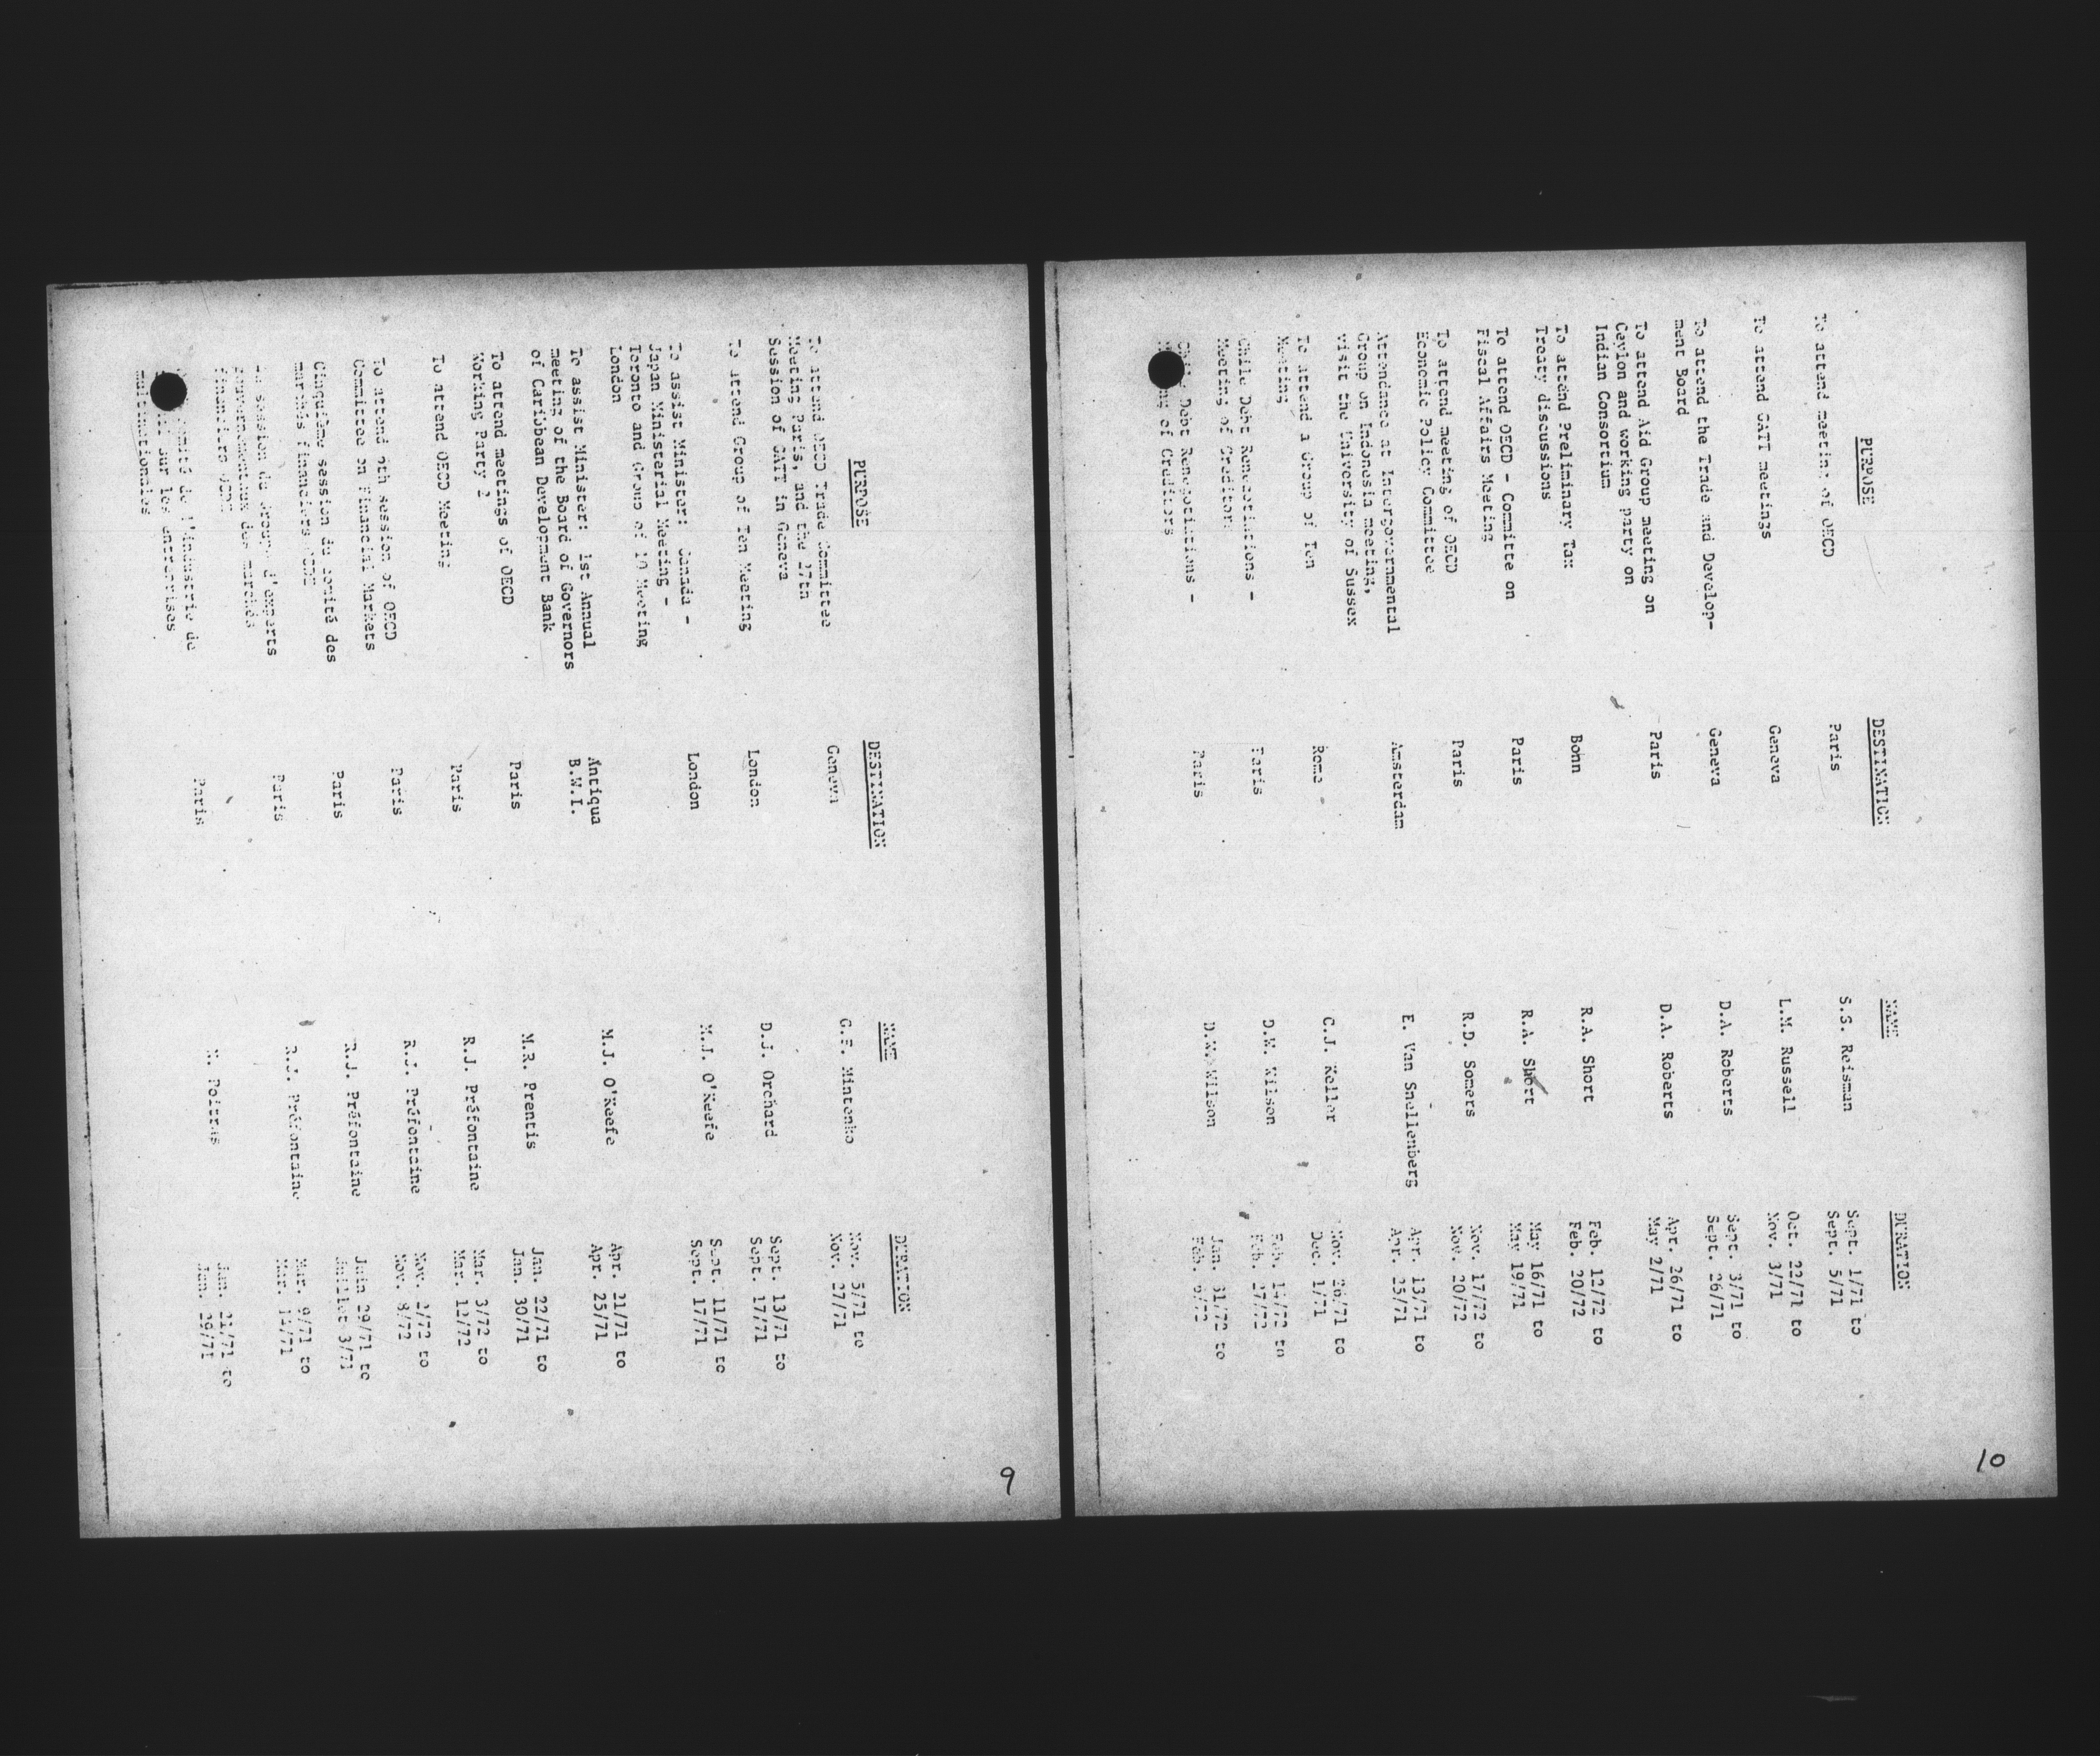 9
PURPOSE DESTINATION NAME DURATION
To attend OECD Trade Committee Geneva G.F. Mintenko Nov. 5/71 to
Meeting Paris, and the 27th Nov. 27/71
Session of GATT in Geneva
To attend Group of Ten Meeting London D.J. Orchard Sept. 13/71 to
Sept. 17/71
To assist Minister: Canada - London M.J. O'Keefe Sept. 11/71 to
Japan Ministerial Meeting - Sept. 17/71
Toronto and Group of 10 Meeting
London
To assist Minister: 1st Annual Antiqua M.J. O'Keefe Apr. 21/71 to
meeting of the Board of Governors B.W.I. Apr. 25/71
of Caribbean Development Bank
To attend meetings of OECD Paris M.R. Prentis Jan. 22/71 to
Working Party 3 Jan. 30/71
To attend OECD Meeting Paris R.J. Préfontaine Mar. 3/72 to
Mar. 12/72
To attend session of OECD Paris R.J. Préfontaine Nov. 2/72 to
Committee on Financial Markets Nov. 8/72
Cinquième session du comité des Paris R.J. Préfontaine Juin 29/71 to
marchés financiers Juillet 3/71
session du groupe d'experts Paris R.J. Préfontaine Mar. 9/71 to
gouvernementaux des marchés Mar.
financiers
comité de l'industrie de Paris Poitras Jan. 21/71 to
sur les entreprises Jan. 29/71
multinationales
10
PURPOSE DESTINATION NAME DURATION
To attend meeting of OECD Paris S.S. Reisman Sept. 1/71 to
Sept. 5/71
To attend GATT meetings Geneva L.M. Russell Oct. 22/71 to
Nov. 3/71
To attend the Trade and Develop- Geneva D.A. Roberts Sept. 3/71 to
ment Board Sept. 26/71
To attend Aid Group meeting on Paris D.A. Roberts Apr. 26/71 to
Ceylon and working party on May 2/71
Indian Consortium
To attend Preliminary Tax Bonn R.A. Short Feb. 12/72 to
Treaty discussions Feb. 20/72
To attend OECD - Committe on Paris R.A. Short May 16/71 to
Fiscal Affairs Meeting May 19/71
To attend meeting of OECD Paris R.D. Somers Nov. 17/72 to
Economic Policy Committee Nov. 20/72
Attendance at Intergovernmental Amsterdam E. Van Snellenberg Apr. 13/71 to
Group on Indonesia meeting, Apr. 25/71
visit the University of Sussex
To attend a Group of Ten Rome C.J. Keller Nov. 26/71 to
Meeting Dec. 1/71
Chile Debt Renegotiations - Paris D.W. Wilson Feb. to
Meeting of Creditors Feb. 27/72
Debt Renegotiations - Paris D.W. Wilson Jan. 31/72 to
of Creditors Feb.